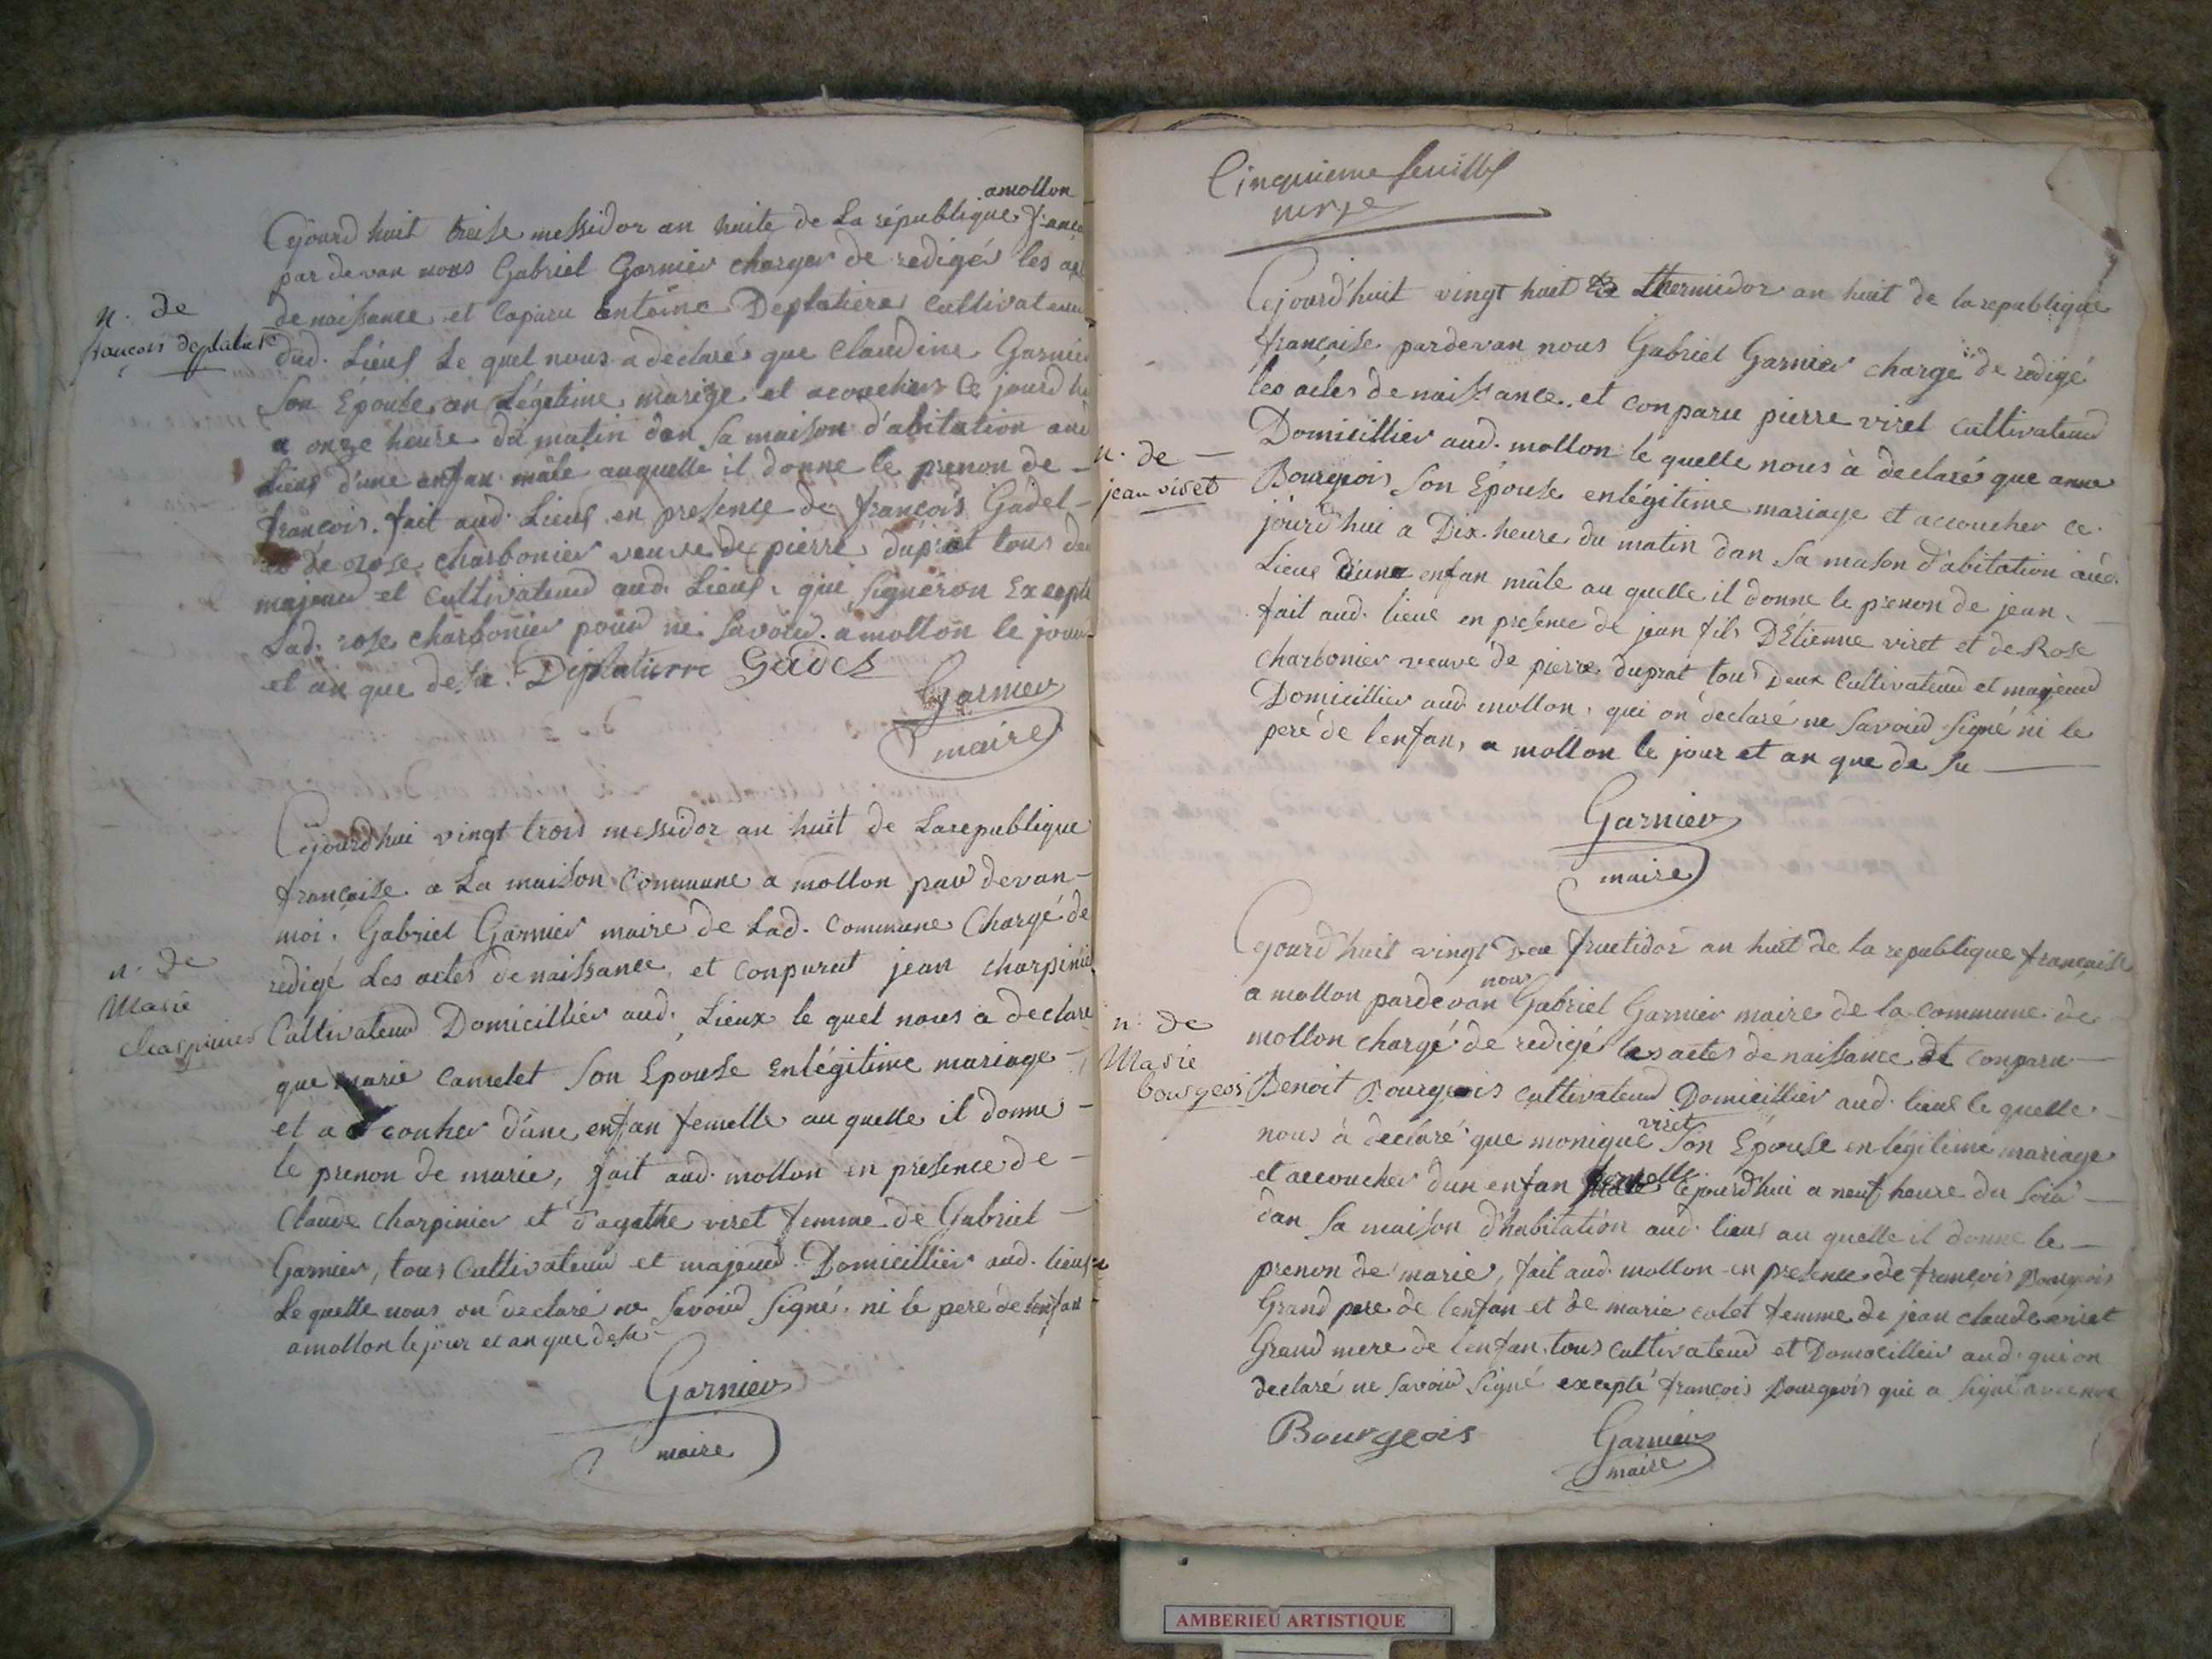 amollon
Cejourd huit treise messidor an huite de La république
par devan nous Gabriel Garnier charger de redigér les
de naissance et Coparu antoine Deplatiere Cultivateur
n. de
françois deplatier
dud. Lieus Le quel nous a declarés que claudine Garnier
Son Épouse en Légitime mariage et acoucher Ce jourd
a onze heure du matin dan Sa maison d'abitation aud
Lieus d'une enfan mâle auquelle il donne le prenon de
françois. fait aud. Lieus en presence de françois Gadel
et de rose charbonier veuve de pierre duprat tous
majeurd et Cultivateurd aud. Lieus. qui signeron Excepté
Lad. rose charbonier pour ne Savoird. a mollon le jour
et an que desu. Deplatierre Gadel
Garnier
maire
Cejourd'hui vingt trois messidor an huit de La republique
française a La maison Commune a mollon par devan
moi. Gabriel Garnier maire de Lad. Commune Chargé de
n. de
Marie
charpinier
redigé Les actes de naissance, et conparut jean charpinier
Cultivateurd Domicillier aud. Lieux le quel nous a declare
que marie camelet Son Épouse en légitime mariage
et a coucher d'une enfan femelle au quelle il donne
le prenon de marie, fait aud. mollon en presence de
Claude charpinier et d'agathe viret femme de Gabriel
Garnier, tous Cultivateurd et majeurd. Domicillier aud. lieus
Le quelle nous on declaré ne Savoird Signé. ni le pere de lenfan
a mollon le jour et an que desu
Garnier
maire
Cinquieme feuillet
Cejourd'huit vingt huit thermidor an huit de la republique
française pardevan nous Gabriel Garnier chargé de redigé
les actes de naissance. et conparu pierre viret cultivateurd
Domicillier aud. mollon le quelle nous à declarés que anne
n. de
jean viret
Bourgeois Son Épouse en légitime mariage et accoucher ce
jourd'hui a Dix heure du matin dan Sa maison d'abitation aud.
Lieus d'une enfan mâle au quelle il donne le prenon de jean.
fait aud. lieus en presence de jean fils D'Etienne viret et de Rose
charbonier veuve de pierre duprat tous Deux Cultivateurd et majeurd
Domicillier aud. mollon. qui on declaré ne Savoird Signé ni le
pere de lenfan, a mollon le jour et an que de Su
Garnier
maire
Cejourd'huit vingt Deu fructidor an huit de la republique française
a mollon pardevan nous Gabriel Garnier maire de la commune de
n. de
Marie
bourgeois
mollon chargé de redigé les actes de naissance et conparu
Benoit Bourgeois cultivateurd Domicillier aud. lieus le quelle
nous à declaré que monique viret Son Épouse en légitime mariage
et accoucher d'un enfan femelle Cejourd'hui a neuf heure du Soir
dan Sa maison d'habitation aud. lieus au quelle il donne le
prenon de marie, fait aud. mollon en presence de françois Bourgeois
Grand pere de lenfan et de marie colet femme de jean claude viret
Grand mere de lenfan, tous cultivateurd et Domicillier aud. qui on
declaré ne Savoir Signé excepté françois Bourgeois qui a Signé avec nou
Bourgeois
Garnier
maire
AMBERIEU ARTISTIQUE